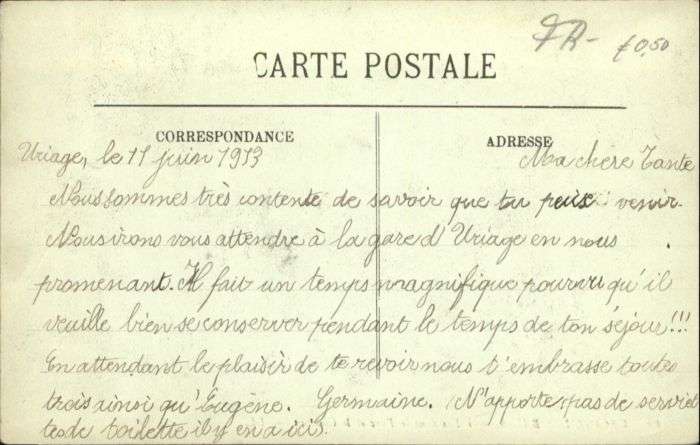 FR- £0,50
CARTE POSTALE
CORRESPONDANCE
ADRESSE
Uriage, le 11 juin 1913
Ma chère Tante
Nous sommes très contente de savoir que tu peux venir.
Nous irons vous attendre à la gare d'Uriage en nous
promenant. Il fait un temps magnifique pourvu qu'il
veuille bien se conserver pendant le temps de ton séjour!!!
En attendant le plaisir de te revoir nous t'embrasse toutes
trois ainsi qu'Eugène. Germaine. N'apporte pas de serviet
tes de toilette il y en a ici.